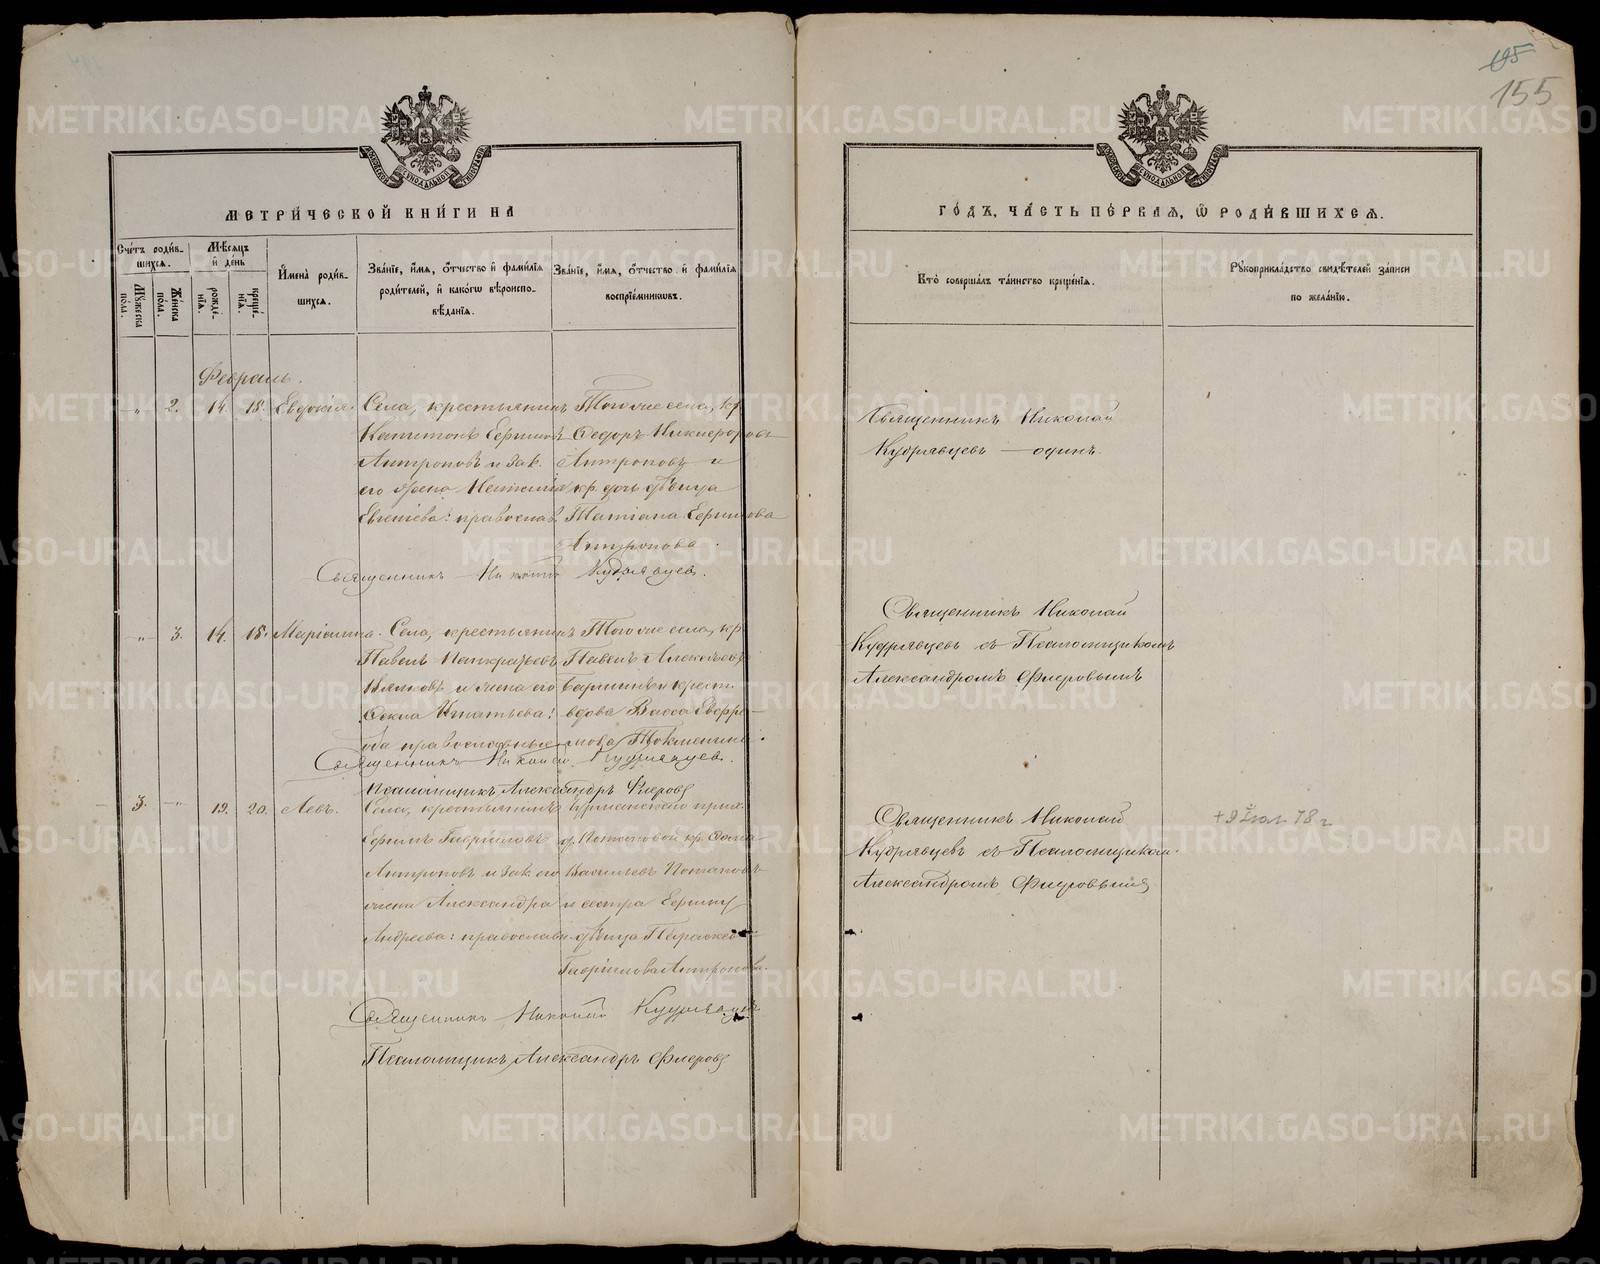 155
МЕТРИ́ЧЕСКОЙ КНИ́ГИ НА
ГО́ДЪ, ЧА́СТЬ ПЕ́РВАЯ, Ѿ РОДИ́ВШИХСЯ.
Сче́тъ роди́в-
шихся.
Му́жеска
по́ла.
Же́нска
по́ла.
Мѣ́сяцъ
и де́нь
рожде́-
нія.
креще́-
нія.
И́мена роди́в-
шихся.
Зва́ніе, и́мя, о́тчество и фами́лія
роди́телей, и како́гѡ вѣроиспо-
вѣ́данія.
Зва́ніе, и́мя, о́тчество и фами́лія
воспріе́мниковъ.
Кто̀ соверша́лъ та́инство креще́нія.
Рꙋкоприкла́дство свидѣ́телей за́писи
по жела́нію.
Февраль.
" 2. 14. 18. Евдокія.
Села, крестьянинъ
Капитонъ Ефимовъ
Антроповъ и зак.
его жена
православ.
Того же села, кр.
Ѳедоръ Никифоровъ
Антроповъ и
кр. дочь дѣвица
Татіана Ефимова
Антропова.
Священникъ Николай
Кудрявцевъ — одинъ.
Священникъ Николай Кудрявцев.
" 3. 14. 18. Маріамна.
Села, крестьянинъ
Павелъ Панкратьевъ
и жена его
Ѳекла Игнатьева:
оба православные
Того же села, кр.
Павелъ Алексѣевъ
и крест.
вдова Васса
Священникъ Николай
Кудрявцевъ съ Псаломщикомъ
Александромъ Флеровымъ
Священникъ Николай Кудрявцев.
Псаломщикъ Александръ Флеровъ
3. " 19. 20. Левъ.
Села, крестьянинъ
Ефимъ Гавріиловъ
Антроповъ и зак. его
жена Александра
Андреева: православн.
прих.
д. Потаповой кр.
Васильевъ Потаповъ
и сестра Ефима
дѣвица Параскева
Гавріилова Антропова.
Священникъ Николай
Кудрявцевъ съ Псаломщиком
Александромъ Флеровымъ
78 г
Священникъ Николай Кудрявцев
Псаломщикъ Александръ Флеровъ
METRIKI.GASO-URAL.RU